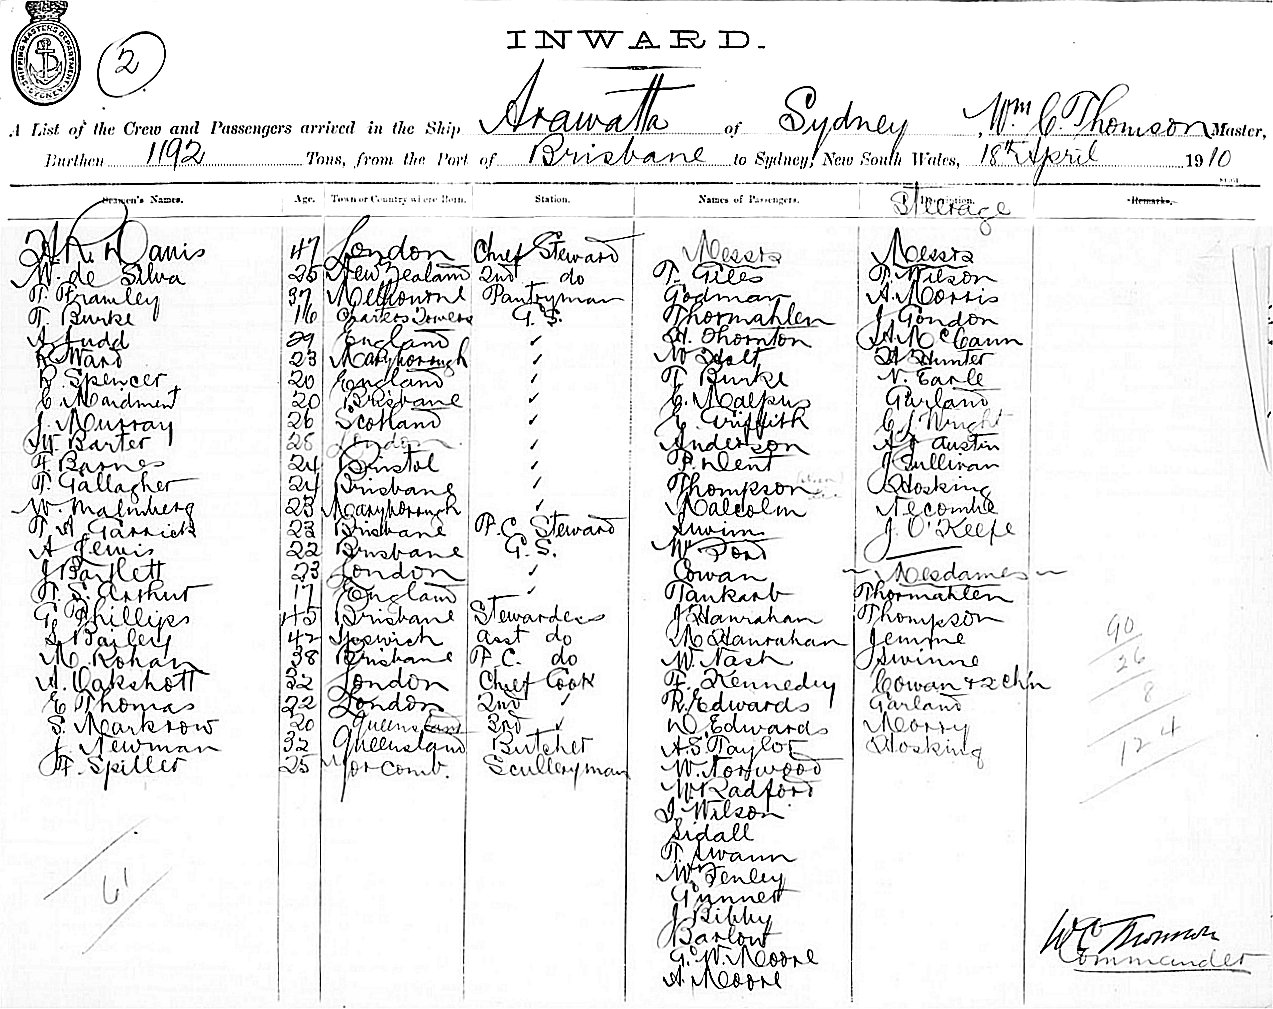 SHIPPING MASTERS DEPARTMENT SYDNEY
2
INWARD.
A List of the Crew and Passengers arrived in the Ship Arawatta of Sydney, Wm C. Thomson Master,
Burthen 1192 Tons, from the Port of Brisbane to Sydney, New South Wales, 18th April 1910
Seamen's Names. Age. Town or Country where Born. Station. Names of Passengers. Description. Remarks.
Steerage
A. R. Davis 47 London Chief Steward Messrs Messrs
W. de Silva 25 New Zealand 2nd do T. Giles T. Wilson
T. Framley 37 Melbourne Pantryman Godman A. Morris
T. Burke 16 Charters Towers G. S. Thormahlen J. Gondon
A. Judd 29 England ✓ A. Thornton A. McCann
R. Ward 23 Maryborough ✓ W. Holt A. Hunter
R. Spencer 20 England ✓ T. Burke N. Earle
C. Mardment 20 Brisbane ✓ C. Malpus Garland
J. Murray 26 Scotland ✓ Griffith C J Wright
W. Barter 25 London ✓ Anderson A J Austin
F. Barnes 24 Bristol ✓ P. Dent J Sullivan
T. Gallagher 24 Brisbane ✓ Thompson Hosking
W. Malmberg 23 Maryborough ✓ Malcolm Necombe
T. A. Garrick 23 Brisbane F. C. Steward Swinn J. O'Keefe
A Lewis 22 Brisbane G. S. W. Ford
J Bartlett 23 London ✓ Cowan Mesdames
A. S. Arthur 17 England ✓ Tankard Thormahlen
G. Phillips 45 Brisbane Stewardess J Hanrahan Thompson
L Bailey 42 Ipswich asst do M Hanrahan Jemme
M. Rohan 38 Brisbane F. C. do W. Nash Swinne
A. Oakshott 32 London Chief Cook F. Kennedy Cowan + 2 ch'n
E Thomas 22 London 2nd ✓ R. Edwards Garland
S. Markrow 20 Queensland 3rd ✓ D. Edwards Morry
J. Newman 32 Queensland Butcher A. S. Taylor Hosking
F. Spiller 25 Morcomb. Sculleryman W. Norwood
W. Radford
J. Wilson
Sidall
T. Swann
W. Fenley
Gunnett
J Bibby
Barlow
G. W. Moore
A. Moore
90
26
8
124
61
W C Thomson
Commander